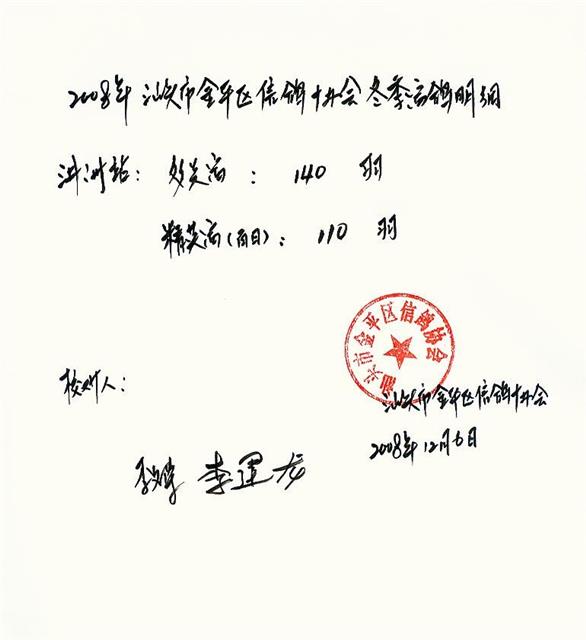 2008年汕头市金平区信鸽协会冬季赛鸽明细
站: 140 羽
精英赛(百日): 110 羽
汕头市金平区信鸽协会
核对人:
汕头市金平区信鸽协会
2008年12月6日
李